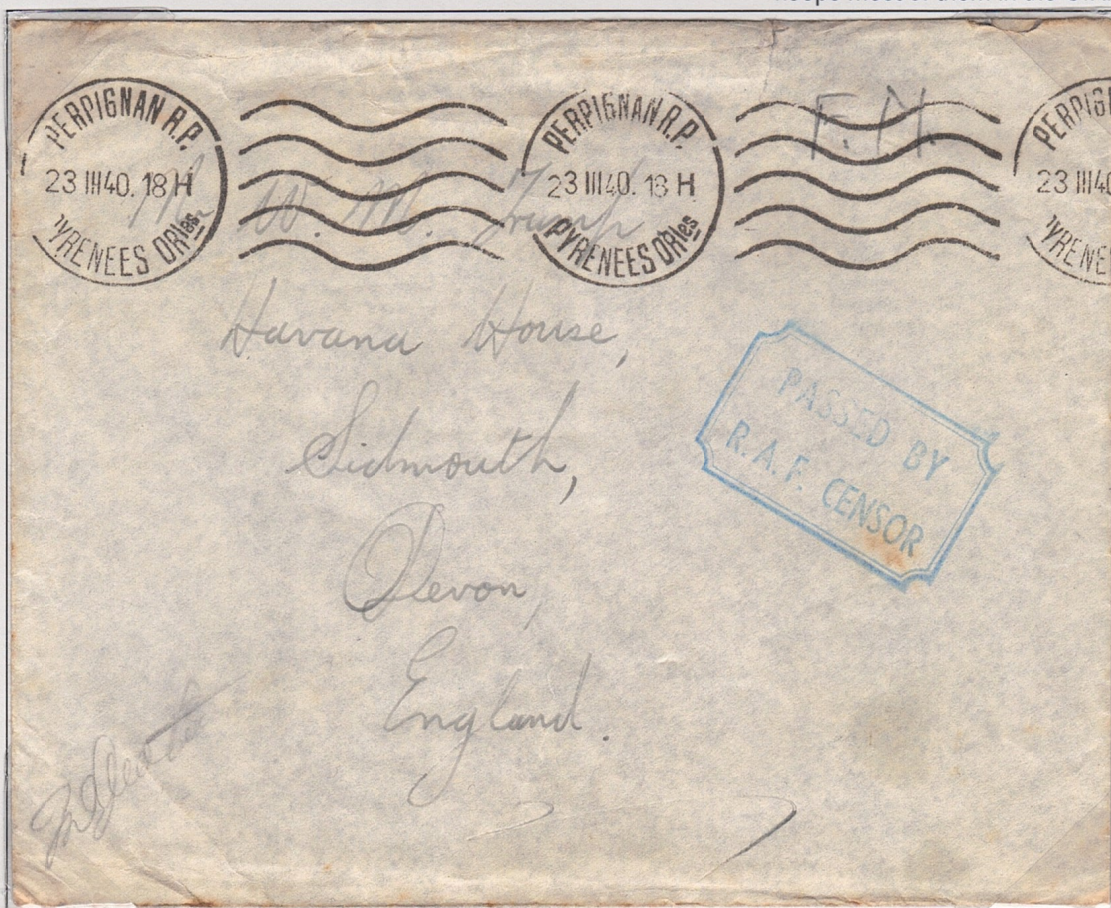 PERPIGNAN R.P.
23 III 40. 18 H
PYRENEES ORles
PERPIGNAN R.P.
23 III 40. 18 H
PYRENEES ORles
F.M.
W. M. Trump
Havana House,
Sidmouth,
Devon,
England.
PASSED BY
R.A.F. CENSOR